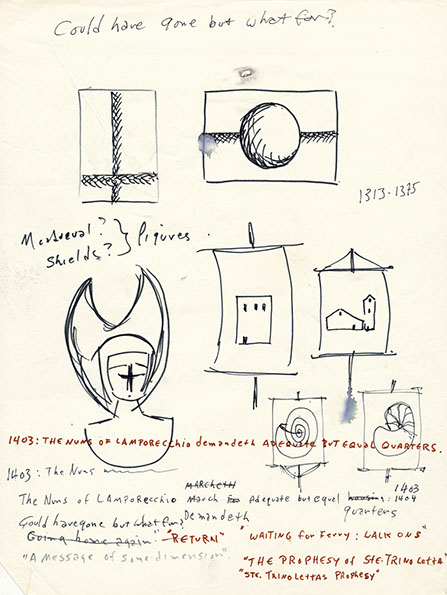 Could have gone but what for?
1313-1375
Medieval?
Shields?
figures.
1403: THE NUNS OF LAMPORECCHIO demandeth ADEQUATE BUT EQUAL QUARTERS.
1403: The Nuns
MARCHETH
1403
The Nuns of LAMPORECCHIO March for Adequate but equal housing: 1404
quarters
Demandeth
Could have gone but what for?
Going home again: "RETURN"
"WAITING for Ferry: WALK ONS"
"A Message of some dimension".
"THE PROPHESY OF STE. TRINOLETTA"
"STE. TRINOLETTAS PROPHESY"